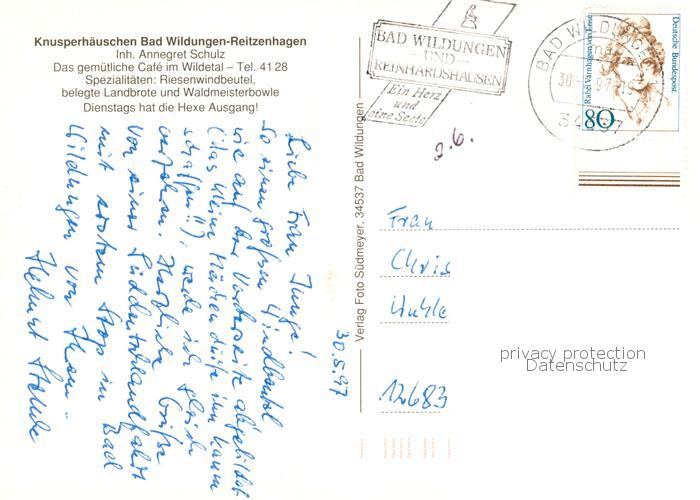 Knusperhäuschen Bad Wildungen-Reitzenhagen
Inh. Annegret Schulz
Das gemütliche Café im Wildetal – Tel. 41 28
Spezialitäten: Riesenwindbeutel,
belegte Landbrote und Waldmeisterbowle
Dienstags hat die Hexe Ausgang!
30.5.97
Liebe Frau
So einen großen Windbeutel
wie auf der Vorderseite abgebildet
(das kleine Mädchen dürfte ihn kaum
schaffen!!), werde ich gleich
verzehren. Herzliche Grüße
von einer Süddeutschlandfahrt
mit erstem Stop in Bad
Wildungen von Ihrem
Helmut
Verlag Foto Südmeyer, 34537 Bad Wildungen
BAD WILDUNGEN
UND
REINHARDSHAUSEN
Ein Herz
und
eine Seele
BAD WILDUNGEN
30.
Deutsche Bundespost
Rahel Varnhagen von Ense
80
2.6.
Frau
Chris
12683
privacy protection
Datenschutz